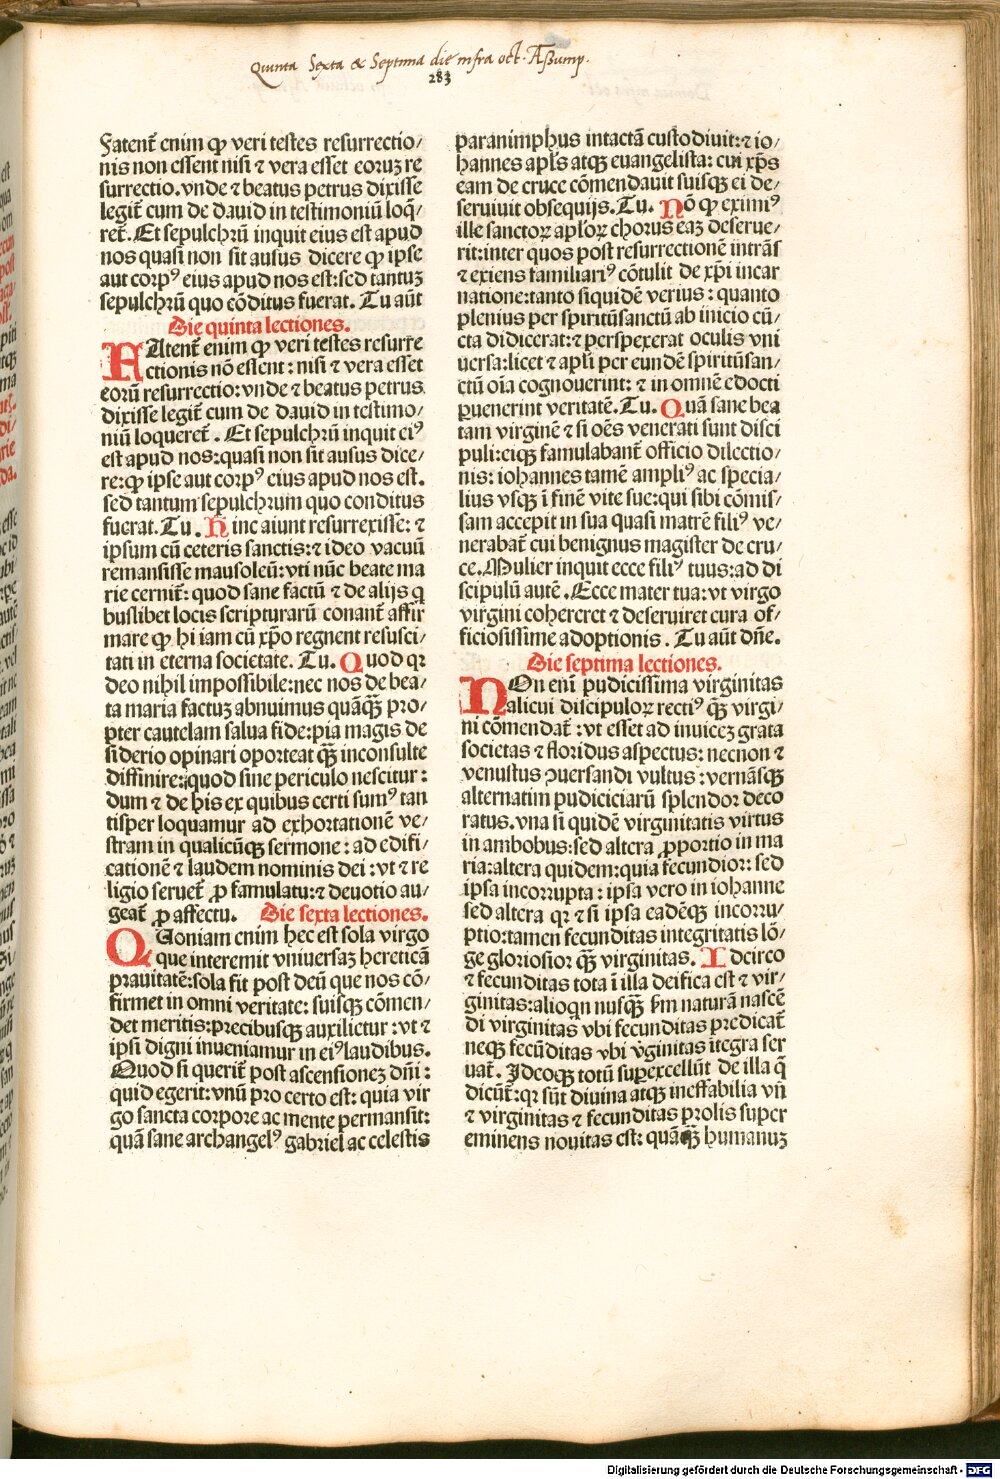 Quinta Sexta & Septima die infra oct. Assump.
283
Fatent̄ enim ꝙ veri testes resurrectio/
nis non essent nisi ⁊ vera esset eoruꝫ re
surrectio. vnde ⁊ beatus petrus dixisse
legit̄ cum de dauid in testimoniū loq̄/
ret̄. Et sepulchrū inquit eius est apud
nos quasi non sit ausus dicere ꝙ ipse
aut corpꝰ eius apud nos est: sed tantuꝫ
sepulchrū quo cōditus fuerat. Tu aūt
Die quinta lectiones.
FAtent̄ enim ꝙ veri testes resurre
ctionis nō essent: nisi ⁊ vera esset
eorū resurrectio: vnde ⁊ beatus petrus
dixisse legit̄ cum de dauid in testimo/
niū loqueret̄. Et sepulchrū inquit eiꝰ
est apud nos: quasi non sit ausus dice/
re: ꝙ ipse aut corpꝰ eius apud nos est.
sed tantum sepulchrum quo conditus
fuerat. Tu. Hinc aiunt resurrexisse: ⁊
ipsum cū ceteris sanctis: ⁊ ideo vacuū
remansisse mausoleū: vti nūc beate ma
rie cernit̄: quod sane factū ⁊ de alijs q
buslibet locis scripturarū conant̄ affir
mare ꝙ hi iam cū xp̄o regnent resusci/
tati in eterna societate. Tu. Quod qꝛ
deo nihil impossibile: nec nos de bea/
ta maria factuꝫ abnuimus quāꝗ̄ pro/
pter cautelam salua fide: pia magis de
siderio opinari oporteat ꝗ̄ inconsulte
diffinire: quod sine periculo nescitur:
dum ⁊ de his ex quibus certi sumꝰ tan
tisper loquamur ad exhortationē ve/
stram in qualicūqꝫ sermone: ad edifi/
cationē ⁊ laudem nominis dei: vt ⁊ re
ligio seruet̄ ꝓ famulatu: ⁊ deuotio au/
geat̄ ꝓ affectu. Die sexta lectiones.
QUoniam enim hec est sola virgo
que interemit vniuersaꝫ hereticā
prauitatē: sola fit post deū que nos cō/
firmet in omni veritate: suisqꝫ cōmen/
det meritis: precibusqꝫ auxilietur: vt ⁊
ipsi digni inueniamur in eiꝰ laudibus.
Quod si querit̄ post ascensioneꝫ dn̄i:
quid egerit: vnū pro certo est: quia vir
go sancta corpore ac mente permansit:
quā sane archangelꝰ gabriel ac celestis
paranimphus intactā custodiuit: ⁊ io/
hannes apl̄s atqꝫ euangelista: cui xp̄s
eam de cruce cōmendauit suisqꝫ ei de/
seruiuit obsequijs. Tu. Nō ꝙ eximiꝰ
ille sanctoꝝ apl̄oꝝ chorus eaꝫ deserue/
rit: inter quos post resurrectionē intrās
⁊ exiens familiariꝰ cōtulit de xp̄i incar
natione: tanto siquidē verius: quanto
plenius per spiritūsanctū ab inicio cū/
cta didicerat: ⁊ perspexerat oculis vni
uersa: licet ⁊ apl̄i per eundē spiritūsan/
ctū oīa cognouerint: ⁊ in omnē edocti
ꝑuenerint veritatē. Tu. Quā sane bea
tam virginē ⁊ si oēs venerati sunt disci
puli: eiqꝫ famulabant̄ officio dilectio/
nis: iohannes tamē ampliꝰ ac specia/
lius vsqꝫ ī finē vite sue: qui sibi cōmis/
sam accepit in sua quasi matrē filiꝰ ve/
nerabat̄ cui benignus magister de cru/
ce. Mulier inquit ecce filiꝰ tuus: ad di
scipulū autē. Ecce mater tua: vt virgo
virgini cohereret ⁊ deseruiret cura of/
ficiosissime adoptionis. Tu aūt dn̄e.
Die septima lectiones.
NOn eni᷄ pudicissima virginitas
alicui discipuloꝝ rectiꝰ ꝗ̄ virgi/
ni cōmendat̄: vt esset ad inuiceꝫ grata
societas ⁊ floridus aspectus: necnon ⁊
venustus ꝯuersandi vultus: vernāsqꝫ
alternatim pudiciciarū splendor deco
ratus. vna si quidē virginitatis virtus
in ambobus: sed altera ꝓportio in ma
ria: altera quidem: quia fecundior: sed
ipsa incorrupta: ipsa vero in iohanne
sed altera qꝛ ⁊ si ipsa eadēqꝫ incorru/
ptio: tamen fecunditas integritatis lō/
ge gloriosior ꝗ̄ virginitas. Idcirco
⁊ fecunditas tota ī illa deifica est ⁊ vir/
ginitas: alioqn nusꝗ̄ ẜm naturā nascē
di virginitas vbi fecunditas predicat̄
neqꝫ fecūditas vbi v̓ginitas ītegra ser
uat̄. Ideoqꝫ totū suꝑexcellūt de illa q̄
dicūt̄: qꝛ sūt diuina atqꝫ ineffabilia vn̄
⁊ virginitas ⁊ fecunditas prolis super
eminens nouitas est: quāꝗ̄ humanuꝫ
Digitalisierung gefördert durch die Deutsche Forschungsgemeinschaft - DFG